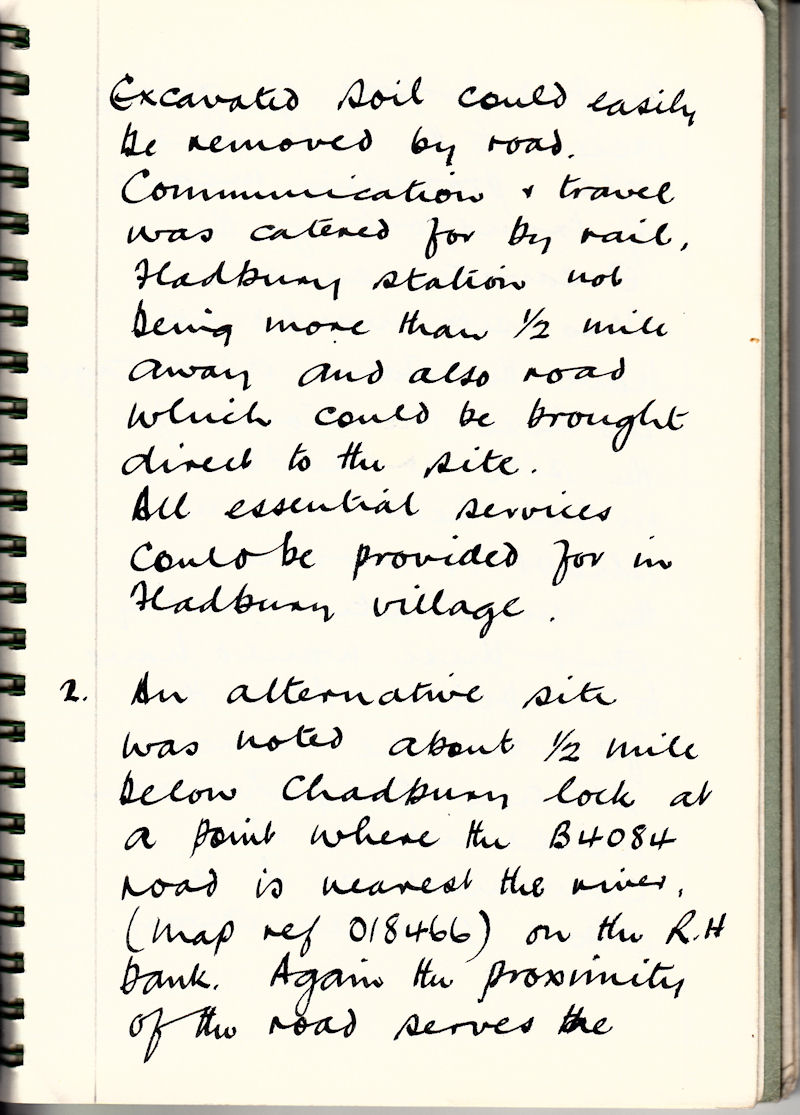 Excavated soil could easily
be removed by road.
Communication & travel
was catered for by rail,
Fladbury station not
being more than 1/2 mile
away and also road
which could be brought
direct to the site.
All essential services
could be provided for in
Fladbury village.
2. An alternative site
was noted about 1/2 mile
below Chadbury lock at
a point where the B4084
road is nearest the river,
(map ref 018466) on the R.H
bank. Again the proximity
of the road serves the